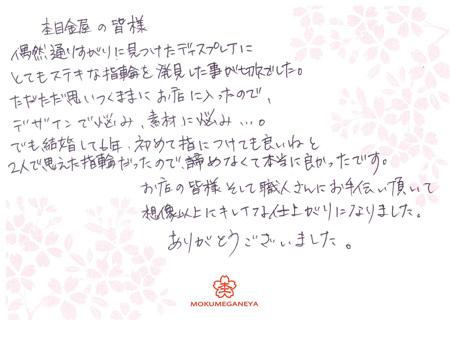 杢目金屋の皆様
偶然通りすがりに見つけたディスプレイに
とてもステキな指輪を発見した事が切欠でした。
ただただ思いつくままにお店に入ったので、
デザインで悩み、素材に悩み…。
でも結婚して6年、初めて指につけても良いねと
2人で思えた指輪だったので、諦めなくて本当に良かったです。
お店の皆様そして職人さんにお手伝い頂いて
想像以上にキレイな仕上がりになりました。
ありがとうございました。
MOKUMEGANEYA